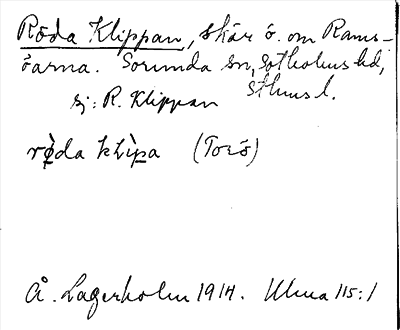 Röda Klippan, skär ö. om Rams-
öarna. Sorunda sn, Sotholms hd,
sj: R. Klippan Sthms l.
rø̀da klìpa (Torö)
Å. Lagerholm 1914. Ulma 115:1